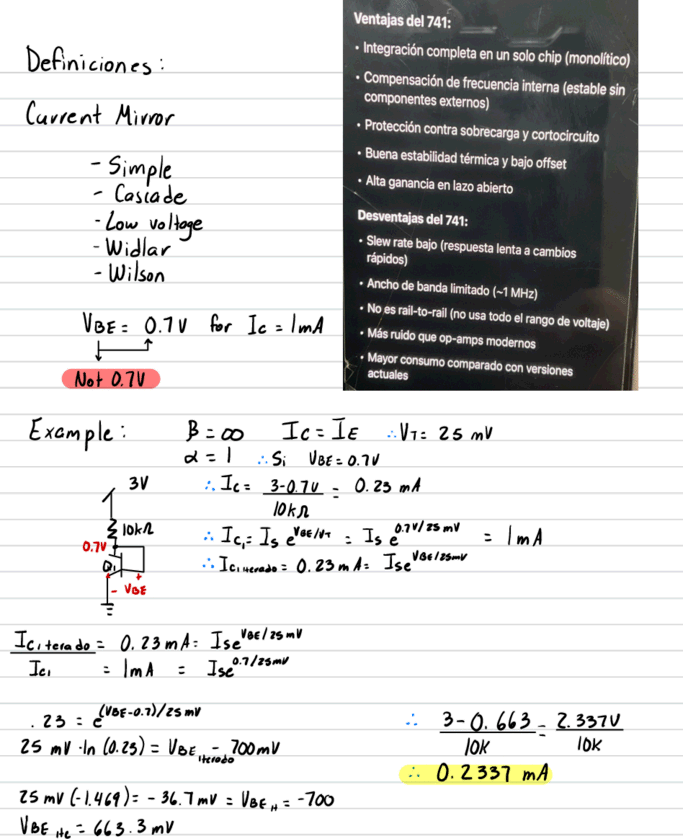 Definiciones:
Current Mirror
- Simple
- Cascade
- Low voltage
- Widlar
- Wilson
VBE = 0.7V for Ic = 1mA
Not 0.7V
Ventajas del 741:
• Integración completa en un solo chip (monolítico)
• Compensación de frecuencia interna (estable sin
componentes externos)
• Protección contra sobrecarga y cortocircuito
• Buena estabilidad térmica y bajo offset
• Alta ganancia en lazo abierto
Desventajas del 741:
• Slew rate bajo (respuesta lenta a cambios
rápidos)
• Ancho de banda limitado (~1 MHz)
• No es rail-to-rail (no usa todo el rango de voltaje)
• Más ruido que op-amps modernos
• Mayor consumo comparado con versiones
actuales
Example: β = ∞ Ic = IE ∴ VT = 25 mV
α = 1 ∴ Si VBE = 0.7V
3V
10kΩ
0.7V
Q1
+
- VBE
∴ Ic = (3-0.7V)/10kΩ = 0.23 mA
∴ Ic1 = Is e^(VBE/VT) = Is e^(0.7V/25mV) = 1mA
∴ Ic1 iterado = 0.23 mA = Is e^(VBE/25mV)
Ic iterado = 0.23 mA = Is e^(VBE/25mV)
Ic1 = 1mA = Is e^(0.7/25mV)
.23 = e^((VBE-0.7)/25mV)
25 mV · ln(0.23) = VBE iterado - 700mV
25 mV (-1.469) = -36.7mV = VBE It = -700
VBE Ite = 663.3mV
∴ (3-0.663)/10K = 2.337V/10K
∴ 0.2337 mA